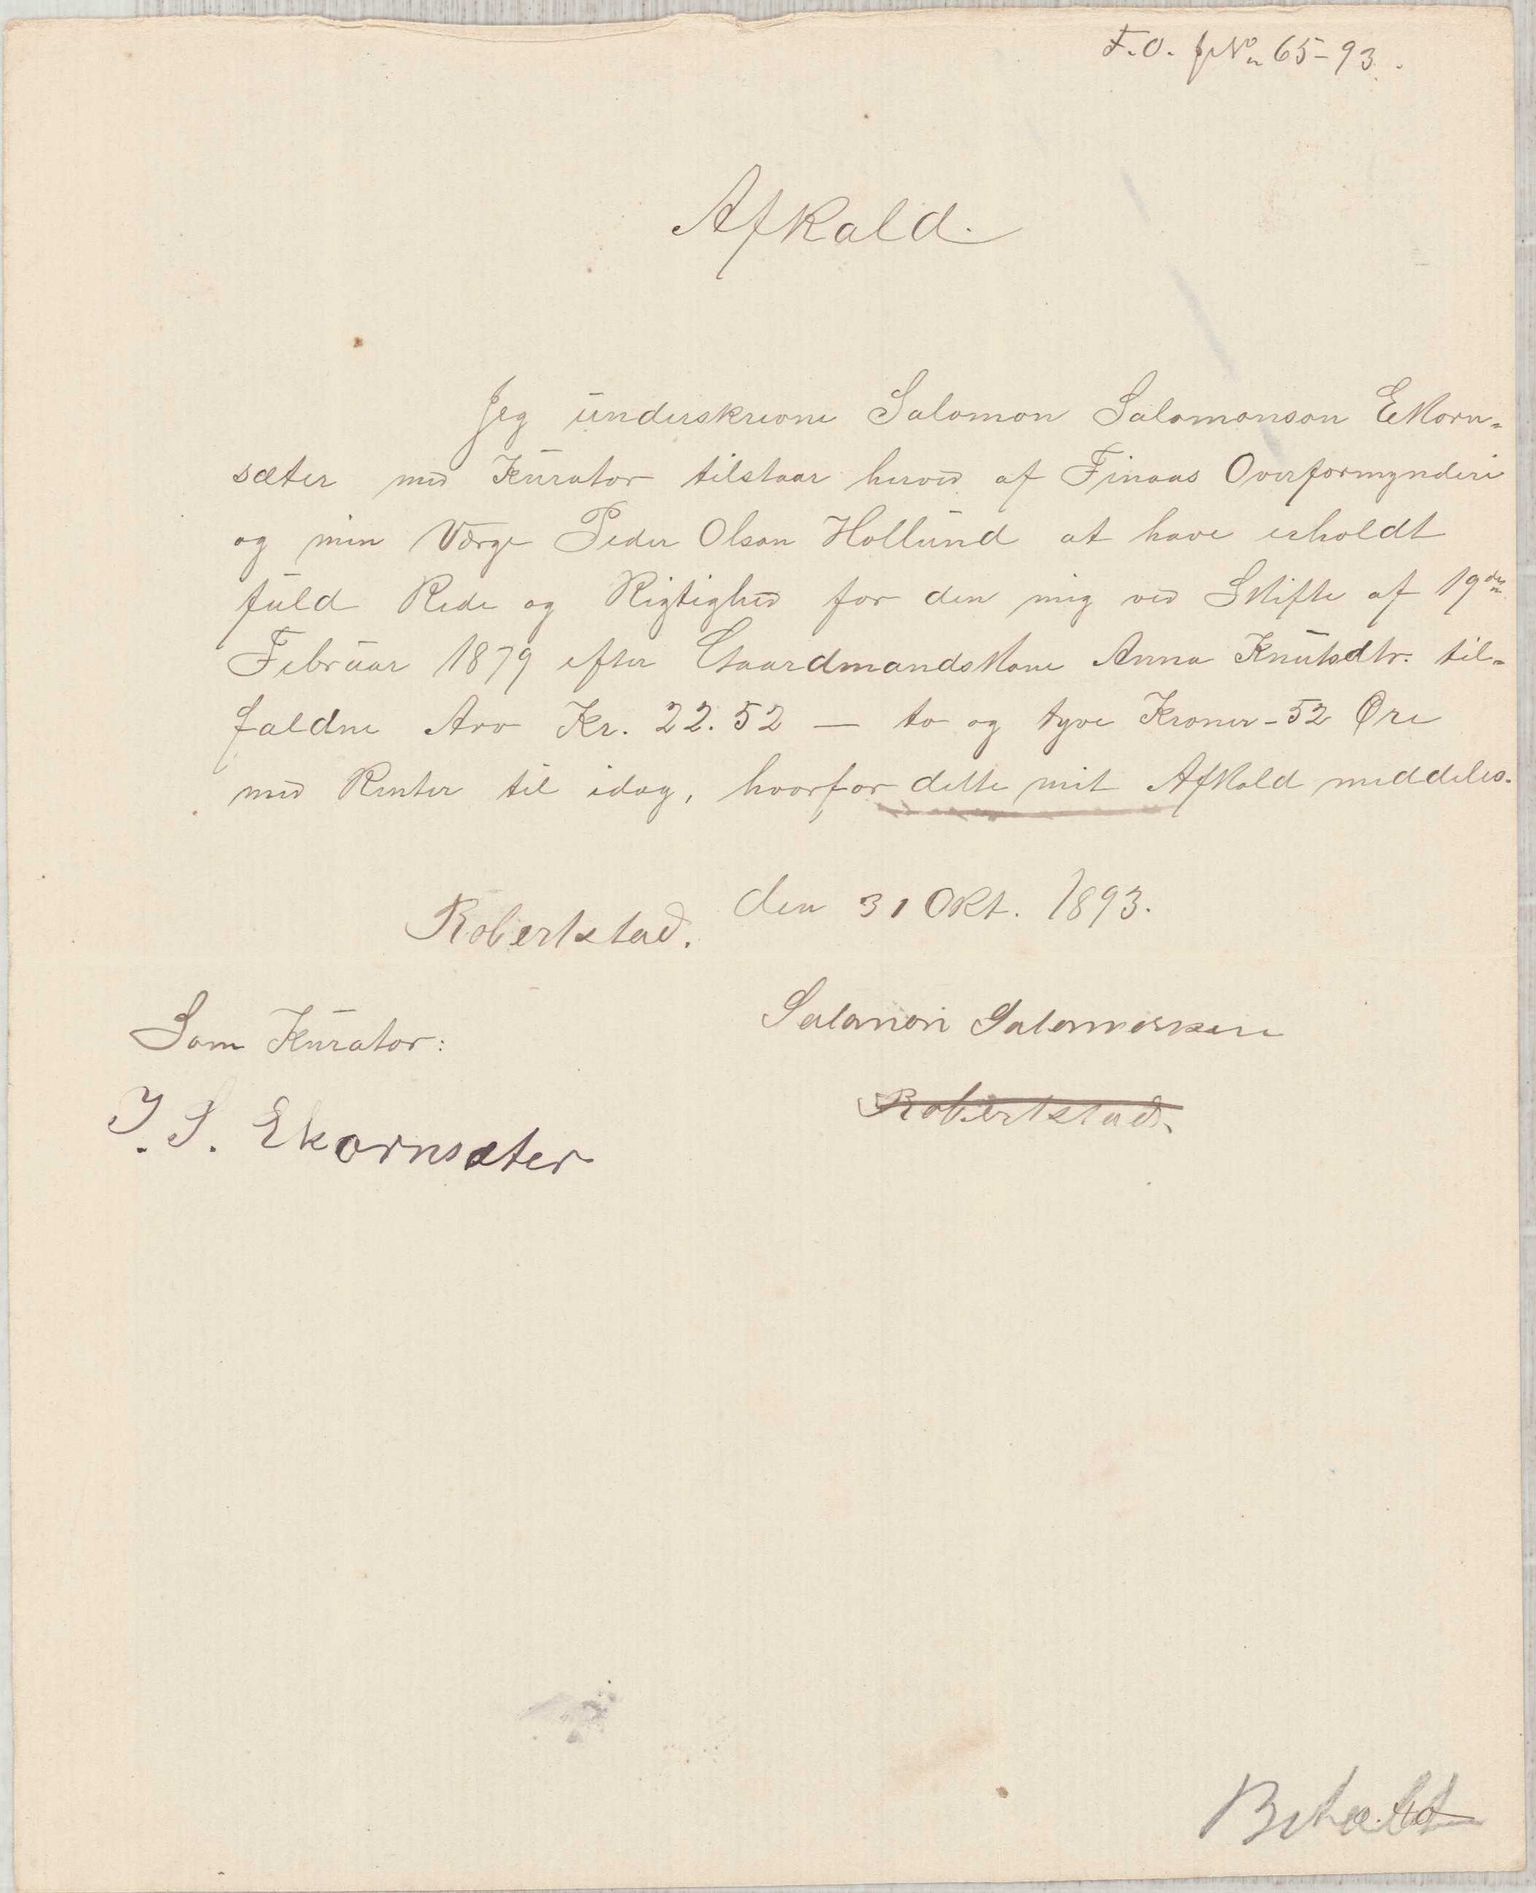 F.O. JNo 65-93.
Afkald.
Jeg underskrevne Salomon Salomonson Ekorn-
sæter med Kurator tilstaar herved af Finaas Overformynderi
og min Værge Peder Olson Hollund at have erholdt
fuld Rede og Rigtighed for den mig ved Skifte af 19de
Februar 1879 efter Gaardmandskone Anna Knutsdtr. til-
faldne Arv Kr. 22.52 — to og tyve Kroner - 52 Øre
med Renter til idag, hvorfor dette mit Afkald meddeles.
Robertstad. den 31 Okt. 1893.
Som Kurator: Salomon Salomonsen
J. S. Ekornsæter Robertstad.
Betalt